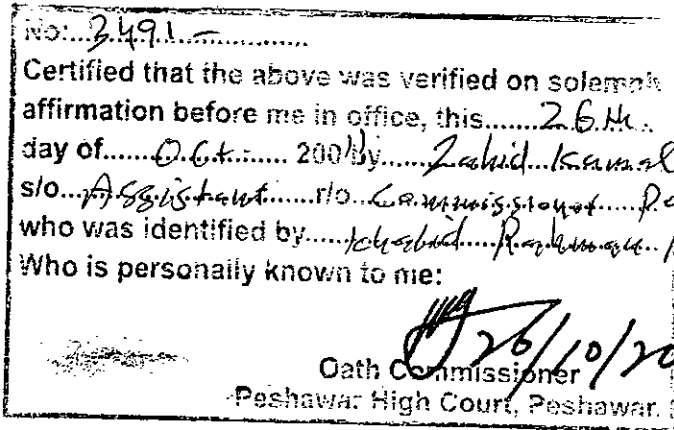 No:...3491-..............
Certified that the above was verified on solemnly
affirmation before me in office, this.......26th..
day of.......Oct....... 200 by......Zahid...Kamal
s/o...Assistant......r/o...Commissioner......Pe
who was identified by......Khalid....Rahman..
Who is personally known to me:
26/10/20
Oath Commissioner
Peshawar High Court, Peshawar.